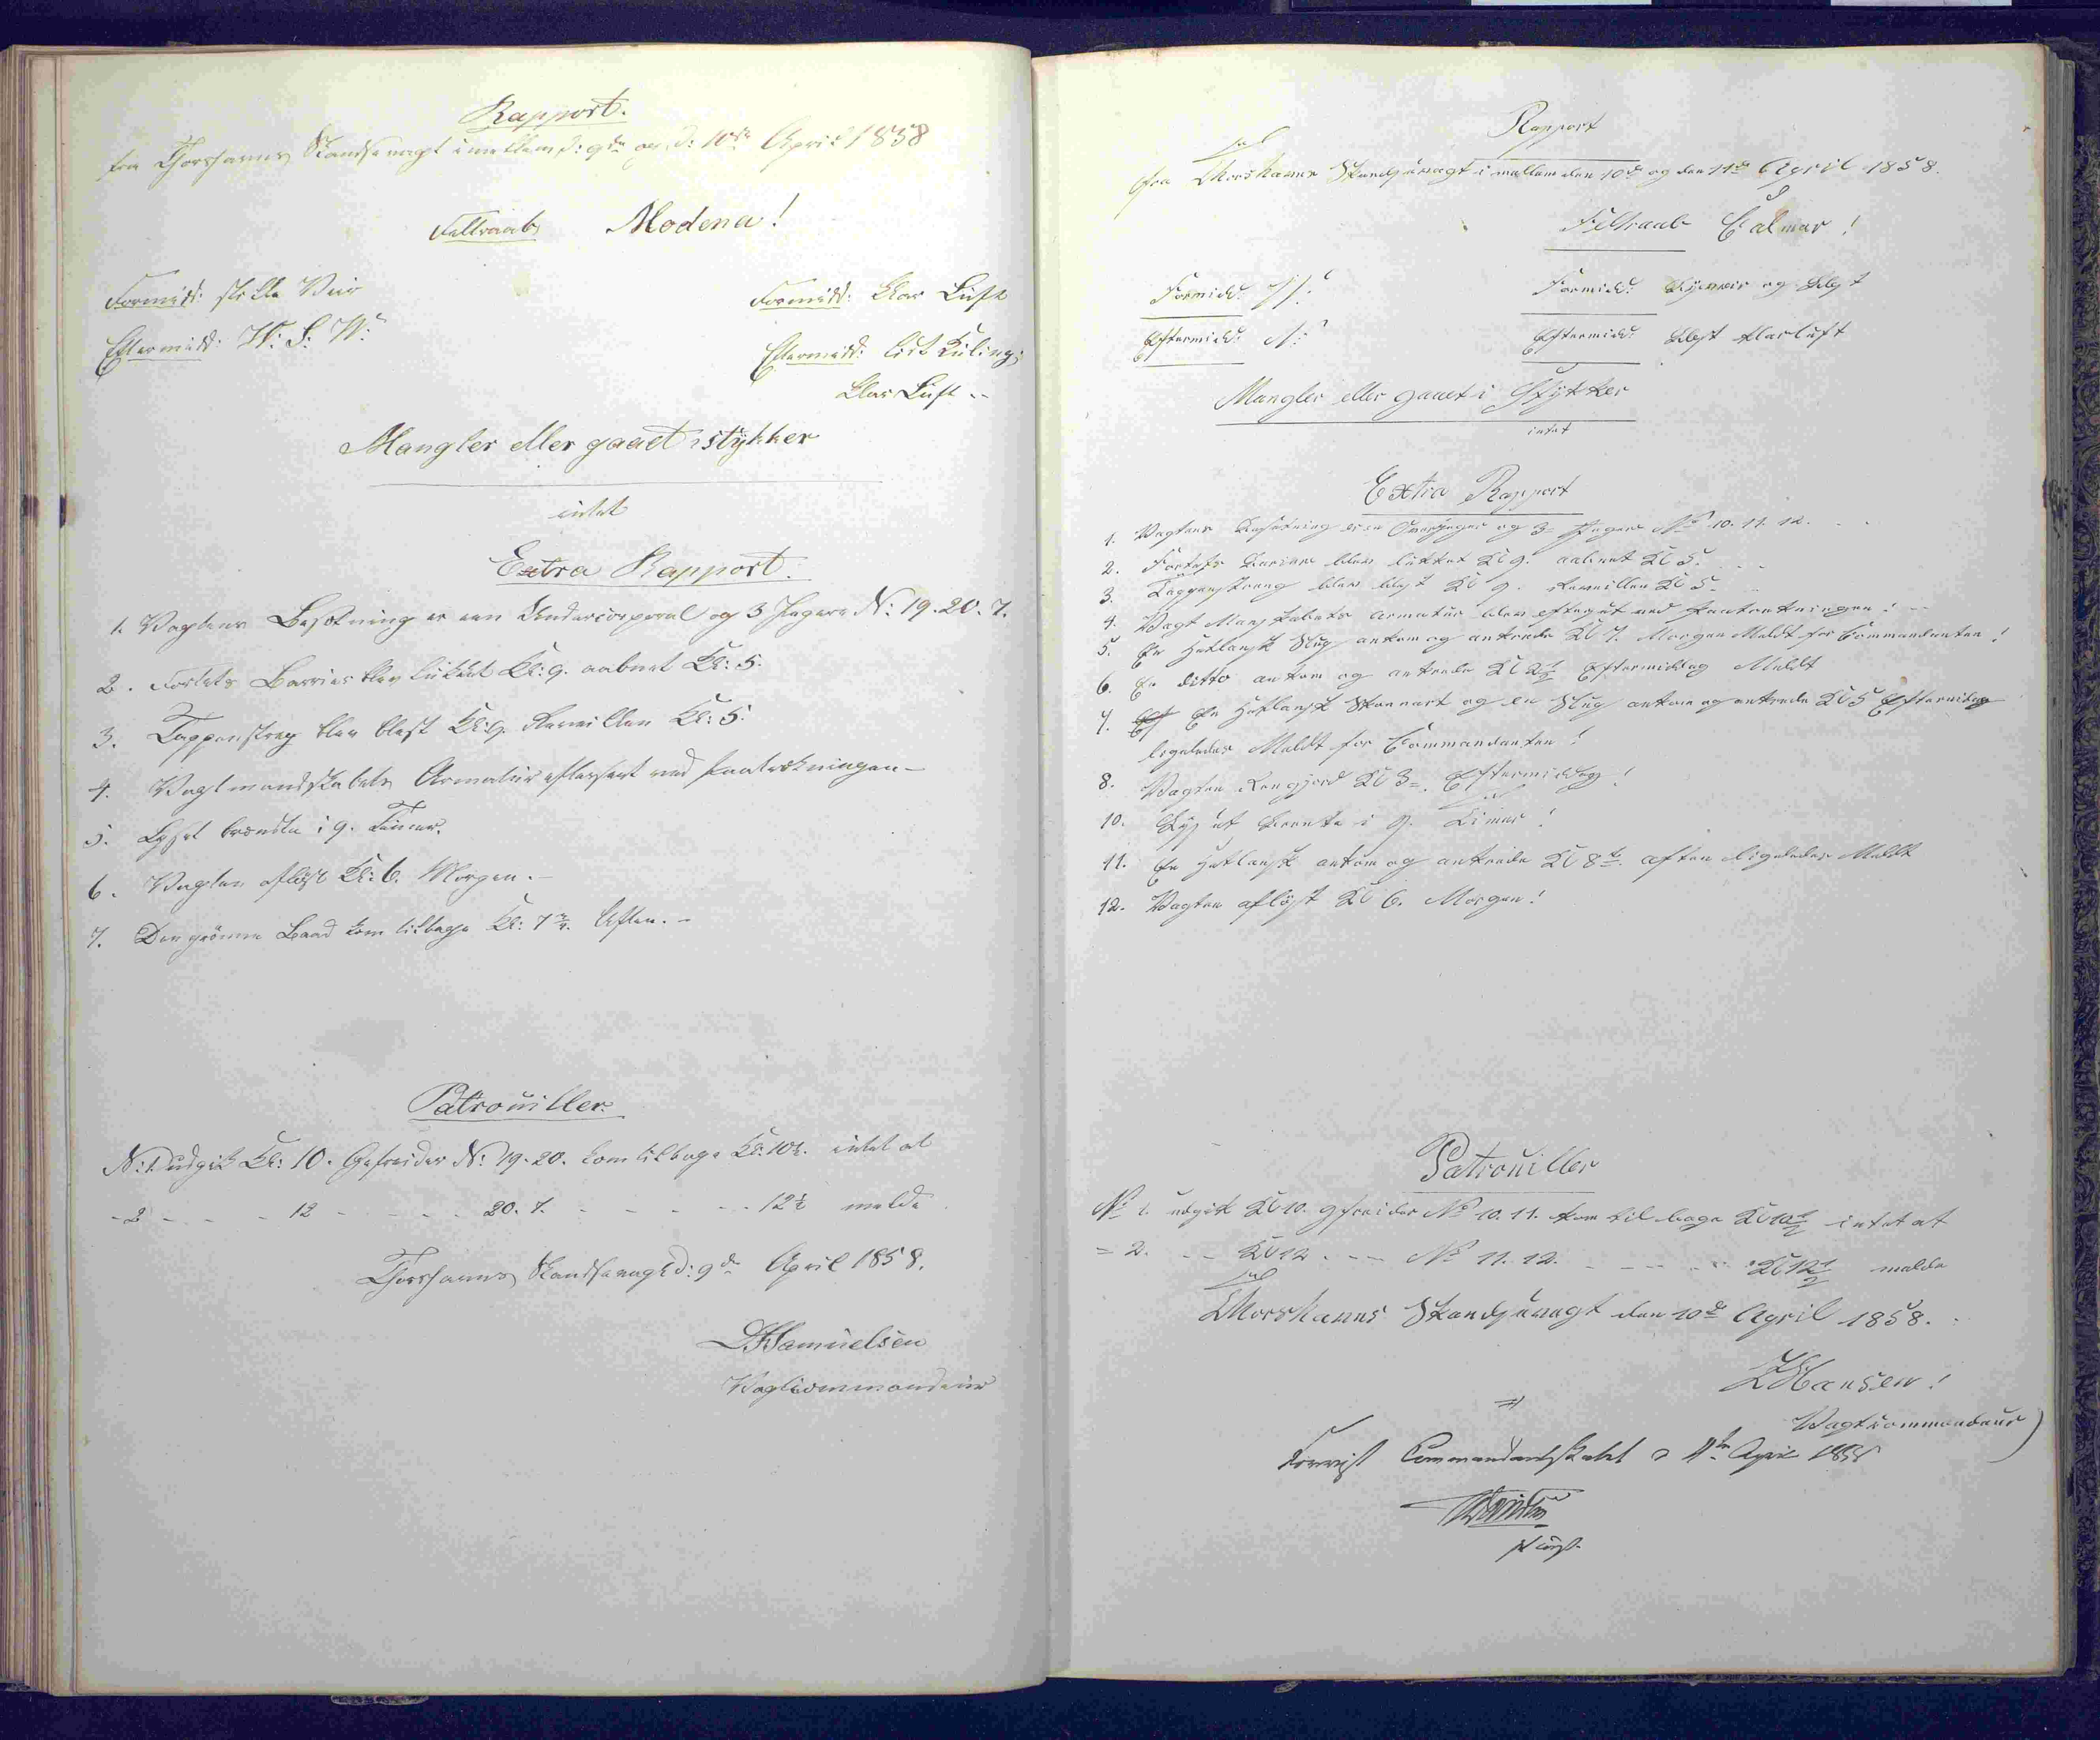 Rapport.
fra Thorshavns Skandsevagt imellem d: 9de og d: 10de April 1858
Feltraab Modena!
Formidd: stille Veir
Formidd: klar Luft
Eftermidd: W: S: W:
Eftermidd: lidt Kuling;
klar Luft --
Mangler eller gaaet istykker
intet
Extra Rapport.
1. Vagtens Besætning er een Undercorporal og 3 Jægere N: 19. 20. 7.
2. Fortets Barrier blev lukket Kl: 9. aabnet Kl: 5.
3. Tappenstreg blev blæst Kl: 9. Reveillen Kl: 5.
4. Vagtmandskabets Armatur efterseet ved Paatrækningen –
5. Lyset brændte i 9. Timer.
6. Vagten afløst Kl: 6. Morgen. –
7. Den grönne Baad kom tilbage Kl: 7 Aften. –
Patrouiller.
N: 1 udgik Kl: 10. Gefreider N: 19. 20. kom tilbage Kl: 10½. intet at
- 2 - - - 12 - - - - 20. 7. - - - - - 12½ melde
Thorshavns Skandsevagt d: 9de April 1858.
DHSamuelsen
Vagtcommandeur
Rapport
fra Thorshavns Skandsevagt imellem den 10de og den 11te April 1858.
Feltraab Calmar!
Formidd: Formidd: og blæst
Eftermidd: N: Eftermidd: blæst klarluft
Mangler eller gaaet i Stykker
intet
Extra Rapport
1. Vagtens Besætning er en Overjæger og 3 Jægere No 10. 11. 12.
2. Fortets Barriere blev lukket Kl 9. aabnet Kl 5.
3. Tappenstreng blev blæst Kl 9. Reveillen Kl 5.
4. Vagt Manskabets Armatur blev efterset ved Paatrækningen! --
5. En Hetlansk Slup ankom og ankrede Kl 7. Morgen Meldt for Commandanten!
6. En ditto ankom og ankrede Kl 2½ Eftermiddag Meldt
7. En Hetlansk Skonnart og en Slup ankom og ankrede Kl 5 Eftermidag
ligeledes Meldt for Commandanten!
8. Vagten Rengjord Kl 3 Eftermiddag!
10. Lyset brente i 9. Timer!
11. En Hetlansk ankom og ankrede Kl 8 aften ligeledes Meldt
12. Vagten afløst Kl 6. Morgen!
Patrouiller
No 1. udgik Kl 10. gfreider No 10. 11. kom tilbage Kl 10½ intet at
= 2. -- Kl 12. --- No 11. 12. - - - - - Kl 12½ melde
Thorshavns Skandsevagt den 10de April 1858.
Hansen!
Vagtcommandeur
Forevist Commandantskabet d 11te April 1858